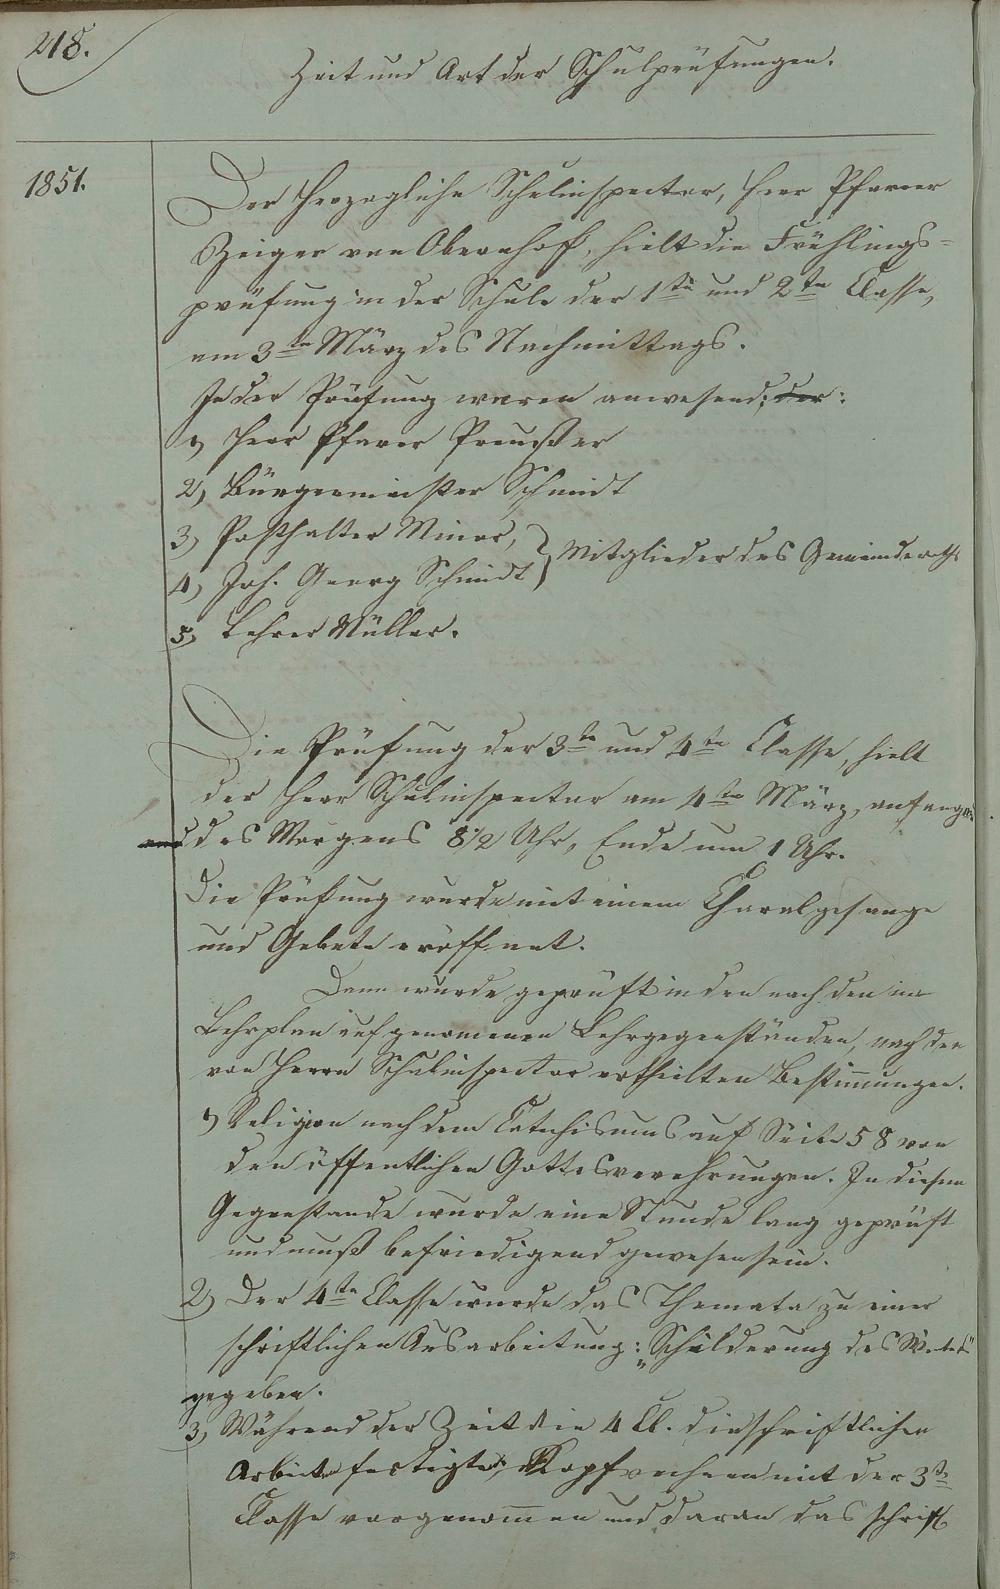 218.
Zeit und Art der Schulprüfungen.
1851.
Der Herzogliche Schulinspector, Herr Pfarrer
Zeiger von Obernhof, hielt die Frühlings=
prüfung in der Schule der 1te und 2te Classe,
am 3te März des Nachmittags.
In der Prüfung waren anwesend: der:
1, Herr Pfarrer Preußer
2, Bürgermeister Schmidt
3, Posthalter Minor,
4, Joh. Georg Schmidt } Mitglieder des Gemeinderaths
5, Lehrer Müller.
Die Prüfung der 3te und 4te Classe, hielt
der Herr Schulinspector am 4ten März, anfangend
des Morgens 8 1/2 Uhr, Ende um 1 Uhr.
Die Prüfung wurde mit einem Choralgesange
und Gebete eröffnet.
Dann wurde geprüft in den nach den im
Lehrplan aufgenomenen Lehrgegenständen, nach den
von Herrn Schulinspector ertheilten Bestimungen.
1, Religion nach dem Catechismus auf Seite 58 von
den öffentlichen Gottesverehrungen. In diesem
Gegenstande wurde eine Stunde lang geprüft
und muß befriedigend gewesen sein.
2, Der 4te Classe wurde das Themata zu einer
schriftlichen Ausarbeitung: „Schilderung des
gegeben.
3, Während der Zeit die 4 Cl. die schriftlichen
Arbeiten fertigte, Kopfrechnen mit der 3te
Classe vorgenommen und daran das schrift